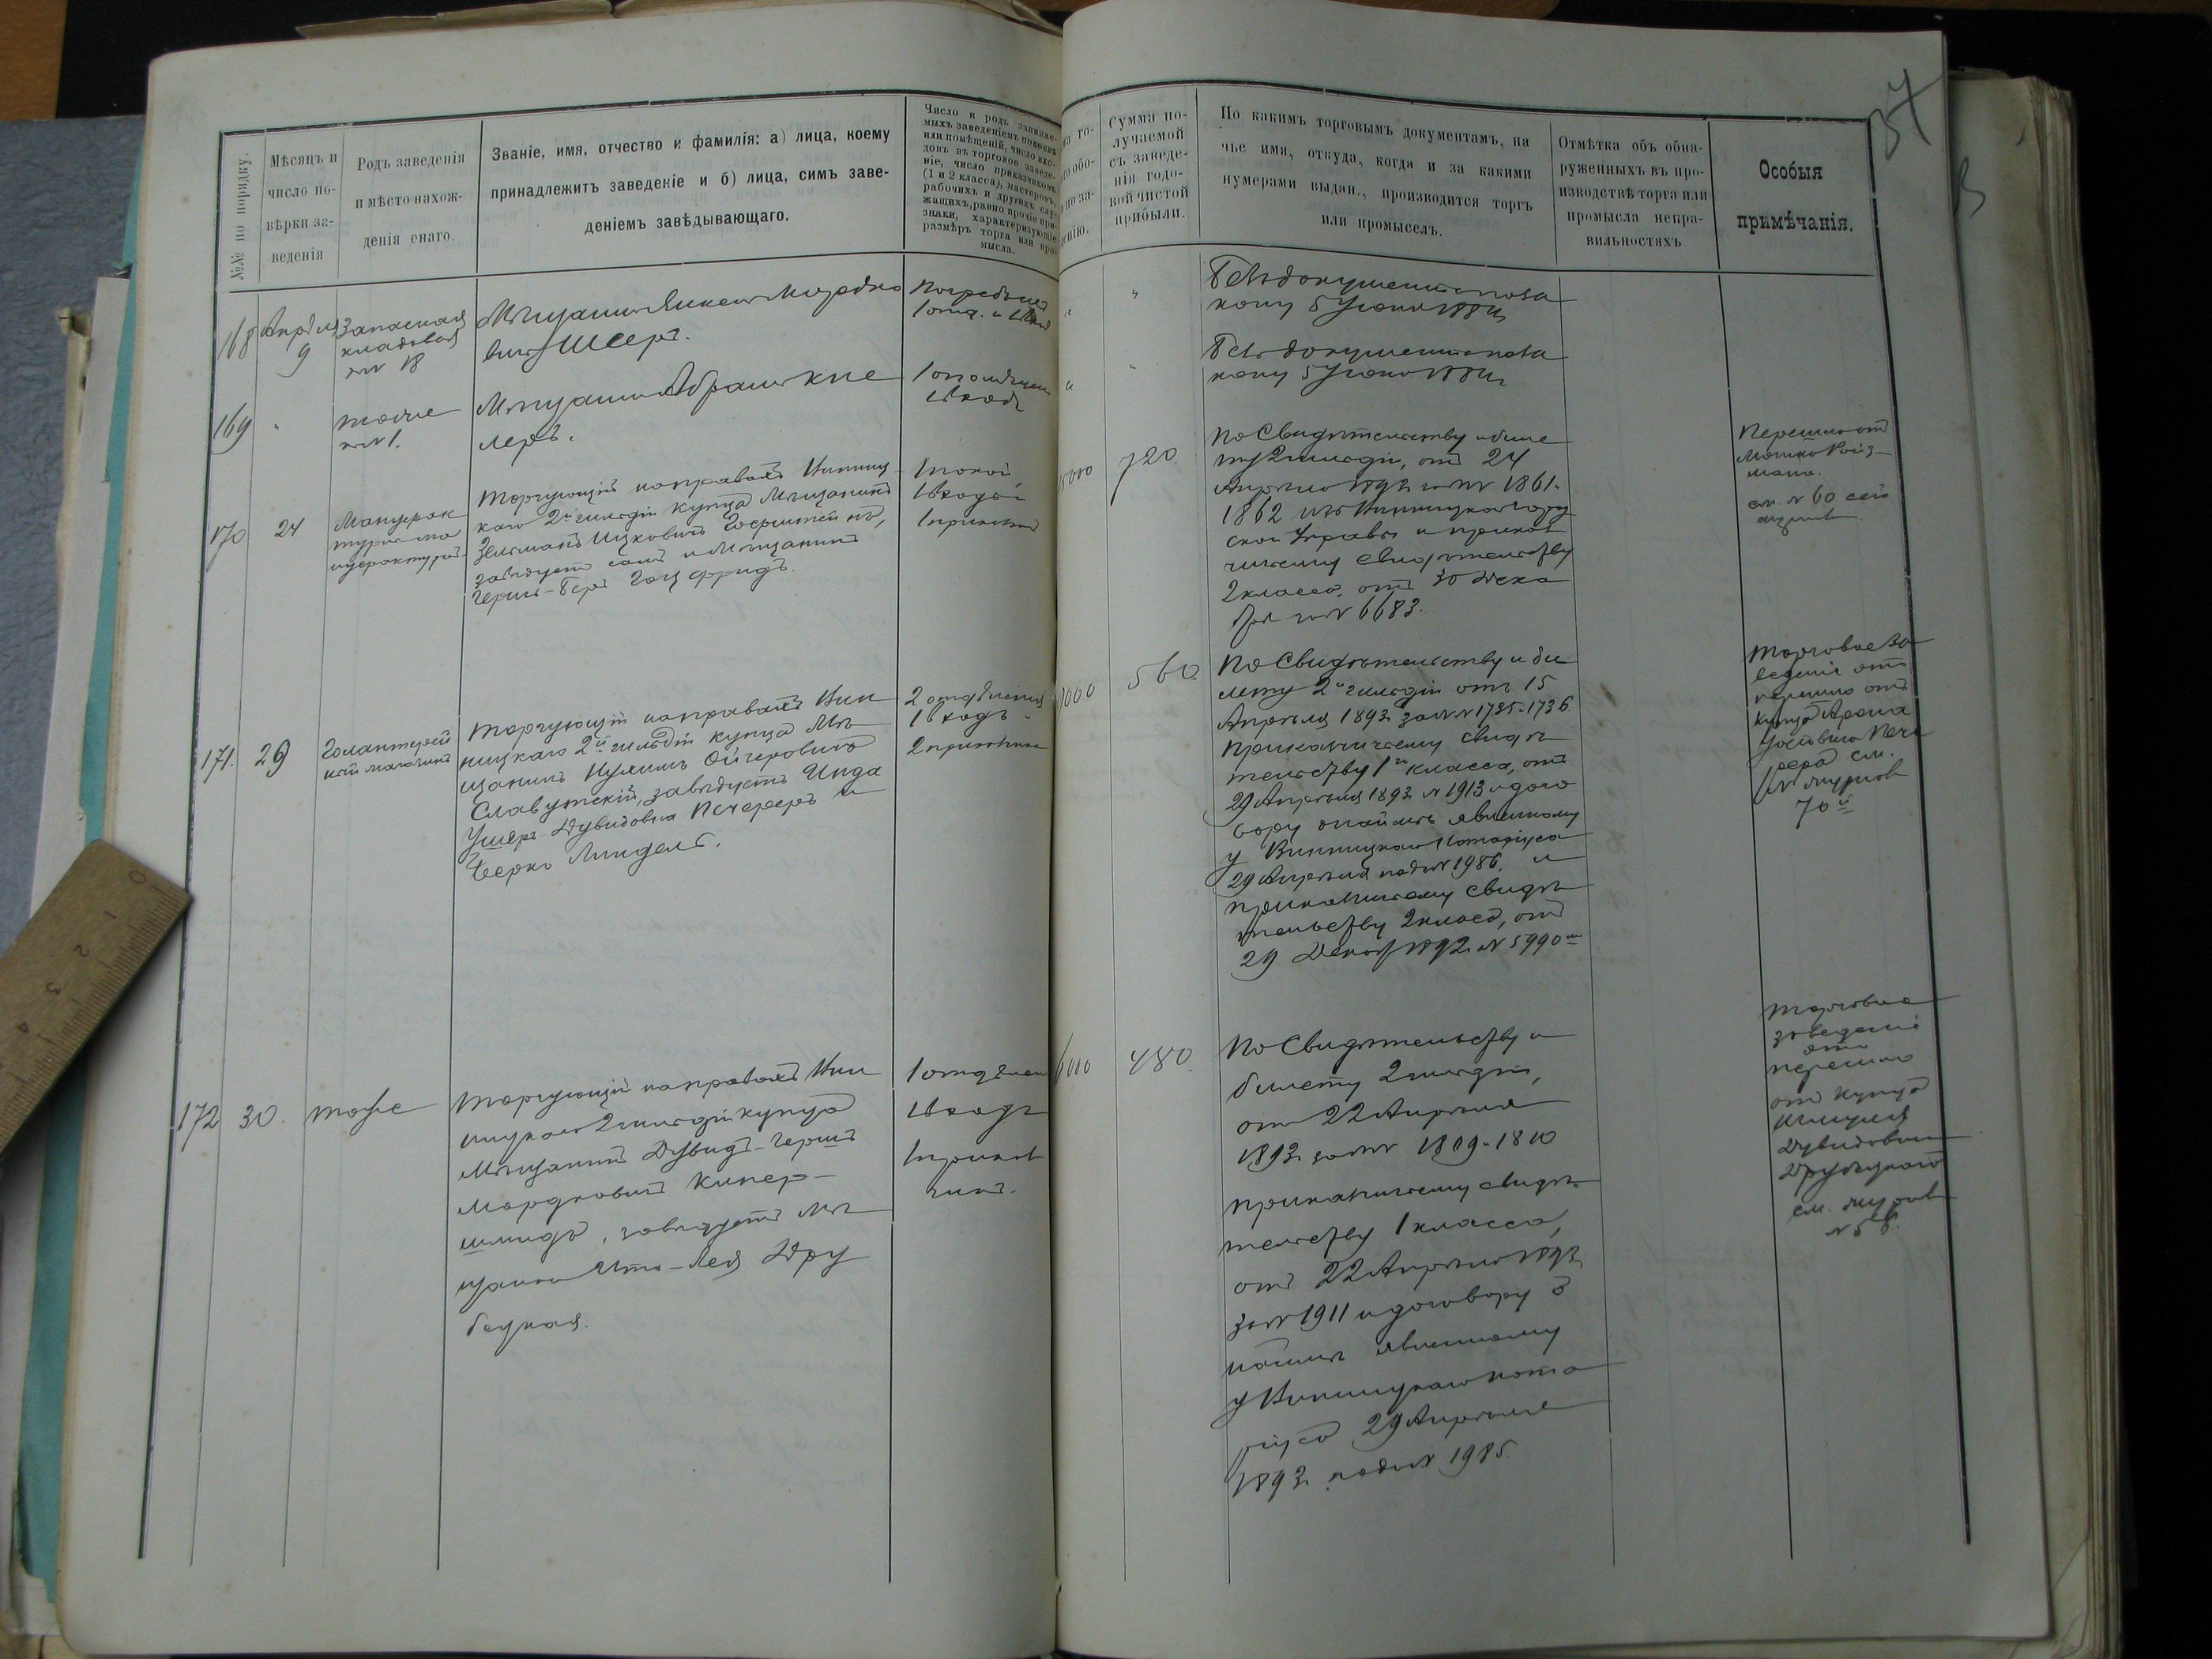 37
№№ по порядку.
Мѣсяцъ и
число по-
вѣрки за-
веденія
Родъ заведенія
и мѣсто нахож-
денія онаго.
Званіе, имя, отчество и фамилія: а) лица, коему
принадлежитъ заведеніе и б) лица, симъ заве-
деніемъ завѣдывающаго.
Число и родъ занимае-
мыхъ заведеніемъ покоевъ
или помѣщеній, число вхо-
довъ въ торговое заведе-
ніе, число приказчиковъ
(1 и 2 класса), мастеровъ,
рабочихъ и другихъ слу-
жащихъ, равно прочіе при-
знаки, характеризующіе
размѣръ торга или про-
мысла.
Сумма по-
лучаемой
съ заведе-
нія годо-
вой чистой
прибыли.
По какимъ торговымъ документамъ, на
чье имя, откуда, когда и за какими
нумерами выдан., производится торгъ
или промыселъ.
Отмѣтка объ обна-
руженныхъ въ про-
изводствѣ торга или
промысла непра-
вильностяхъ
Особыя
примѣчанія.
168
Апрѣля
9
Запасная
кладовая
№ 18
Мѣщанинъ
вичъ Шееръ.
Безъ документа по за
кону 5 Іюня 1884 г.
169
тоже
№ 1.
Мѣщанинъ Абрамъ Кне
леръ.
1 входъ
Безъ документа по за
кону 5 Іюня 1884 г.
170
24
Мануфак
турн
мануфактура
Торгующій на правахъ Винниц
каго 2й гильдіи купца Мѣщанинъ
Зельманъ Ицковичъ
завѣдуетъ самъ и Мѣщанинъ
Гершъ-Беръ Гоцфридъ.
1 покой
1 входъ
1 прикащ
720
По Свидѣтельству и биле
ту 2 гильдіи, отъ 24
Апрѣля 1893 г. за № 1861.
1862 изъ Винницкой Город
ской Управы и прикащ
чичьему свидѣтельству
2 класса, отъ 30 Дека
бря за № 6683.
Перешло отъ
Мошко Войз
мана.
см. № 60 сего
журнала
171.
29
Галантерей
ный магазинъ
Торгующій на правахъ Вин
ницкаго 2й гильдіи купца Мѣ
щанинъ Нухимъ Ойзеровичъ
Славутскій, завѣдуетъ Инда
Ушеръ-Дувидовна Печереръ и
Берко Линдель.
2 отдѣленія
1 входъ
2 прикащика
560
По Свидѣтельству и би
лету 2й гильдіи отъ 15
Апрѣля 1893 г. за №№ 1735-1736
Приказчичьему свидѣ
тельству 1го класса, отъ
29 Апрѣля 1893 г. № 1913 и дого
вору о наймѣ явленному
у Винницкаго Нотаріуса
29 Апрѣля подъ № 1986. и
приказчичьему свидѣ
тельству 2 класса, отъ
29 Декаб 1892 г. № 5990
Торговое за
веденіе это
перешло отъ
купца Арона
Печ
рера см.
№ журнала
70й
172
30.
тоже
Торгующій на правахъ Вин
ницкаго 2 гильдіи купца
Мѣщанинъ Дувидъ-Гершъ
Мордковичъ Купер-
шмидъ, завѣдуетъ Мѣ
щанка Ита-Лея Дру
бецкая.
1 отдѣлен
1 входъ
1 прикащ
чикъ.
6000
480.
По Свидѣтельству и
билету 2 гильдіи,
отъ 22 Апрѣля
1893 г. за №№ 1809-1810
приказчичьему свидѣ
тельству 1 класса,
отъ 22 Апрѣля 1893 г.
за № 1911 и договору о
наймѣ явленному
у Винницкаго нота
ріуса 29 Апрѣля
1893 г. подъ № 1985.
Торговое
заведеніе
это
перешло
отъ купца
Шмуля
Дувидовича
Друбецкаго
см. журнал
№ 56.